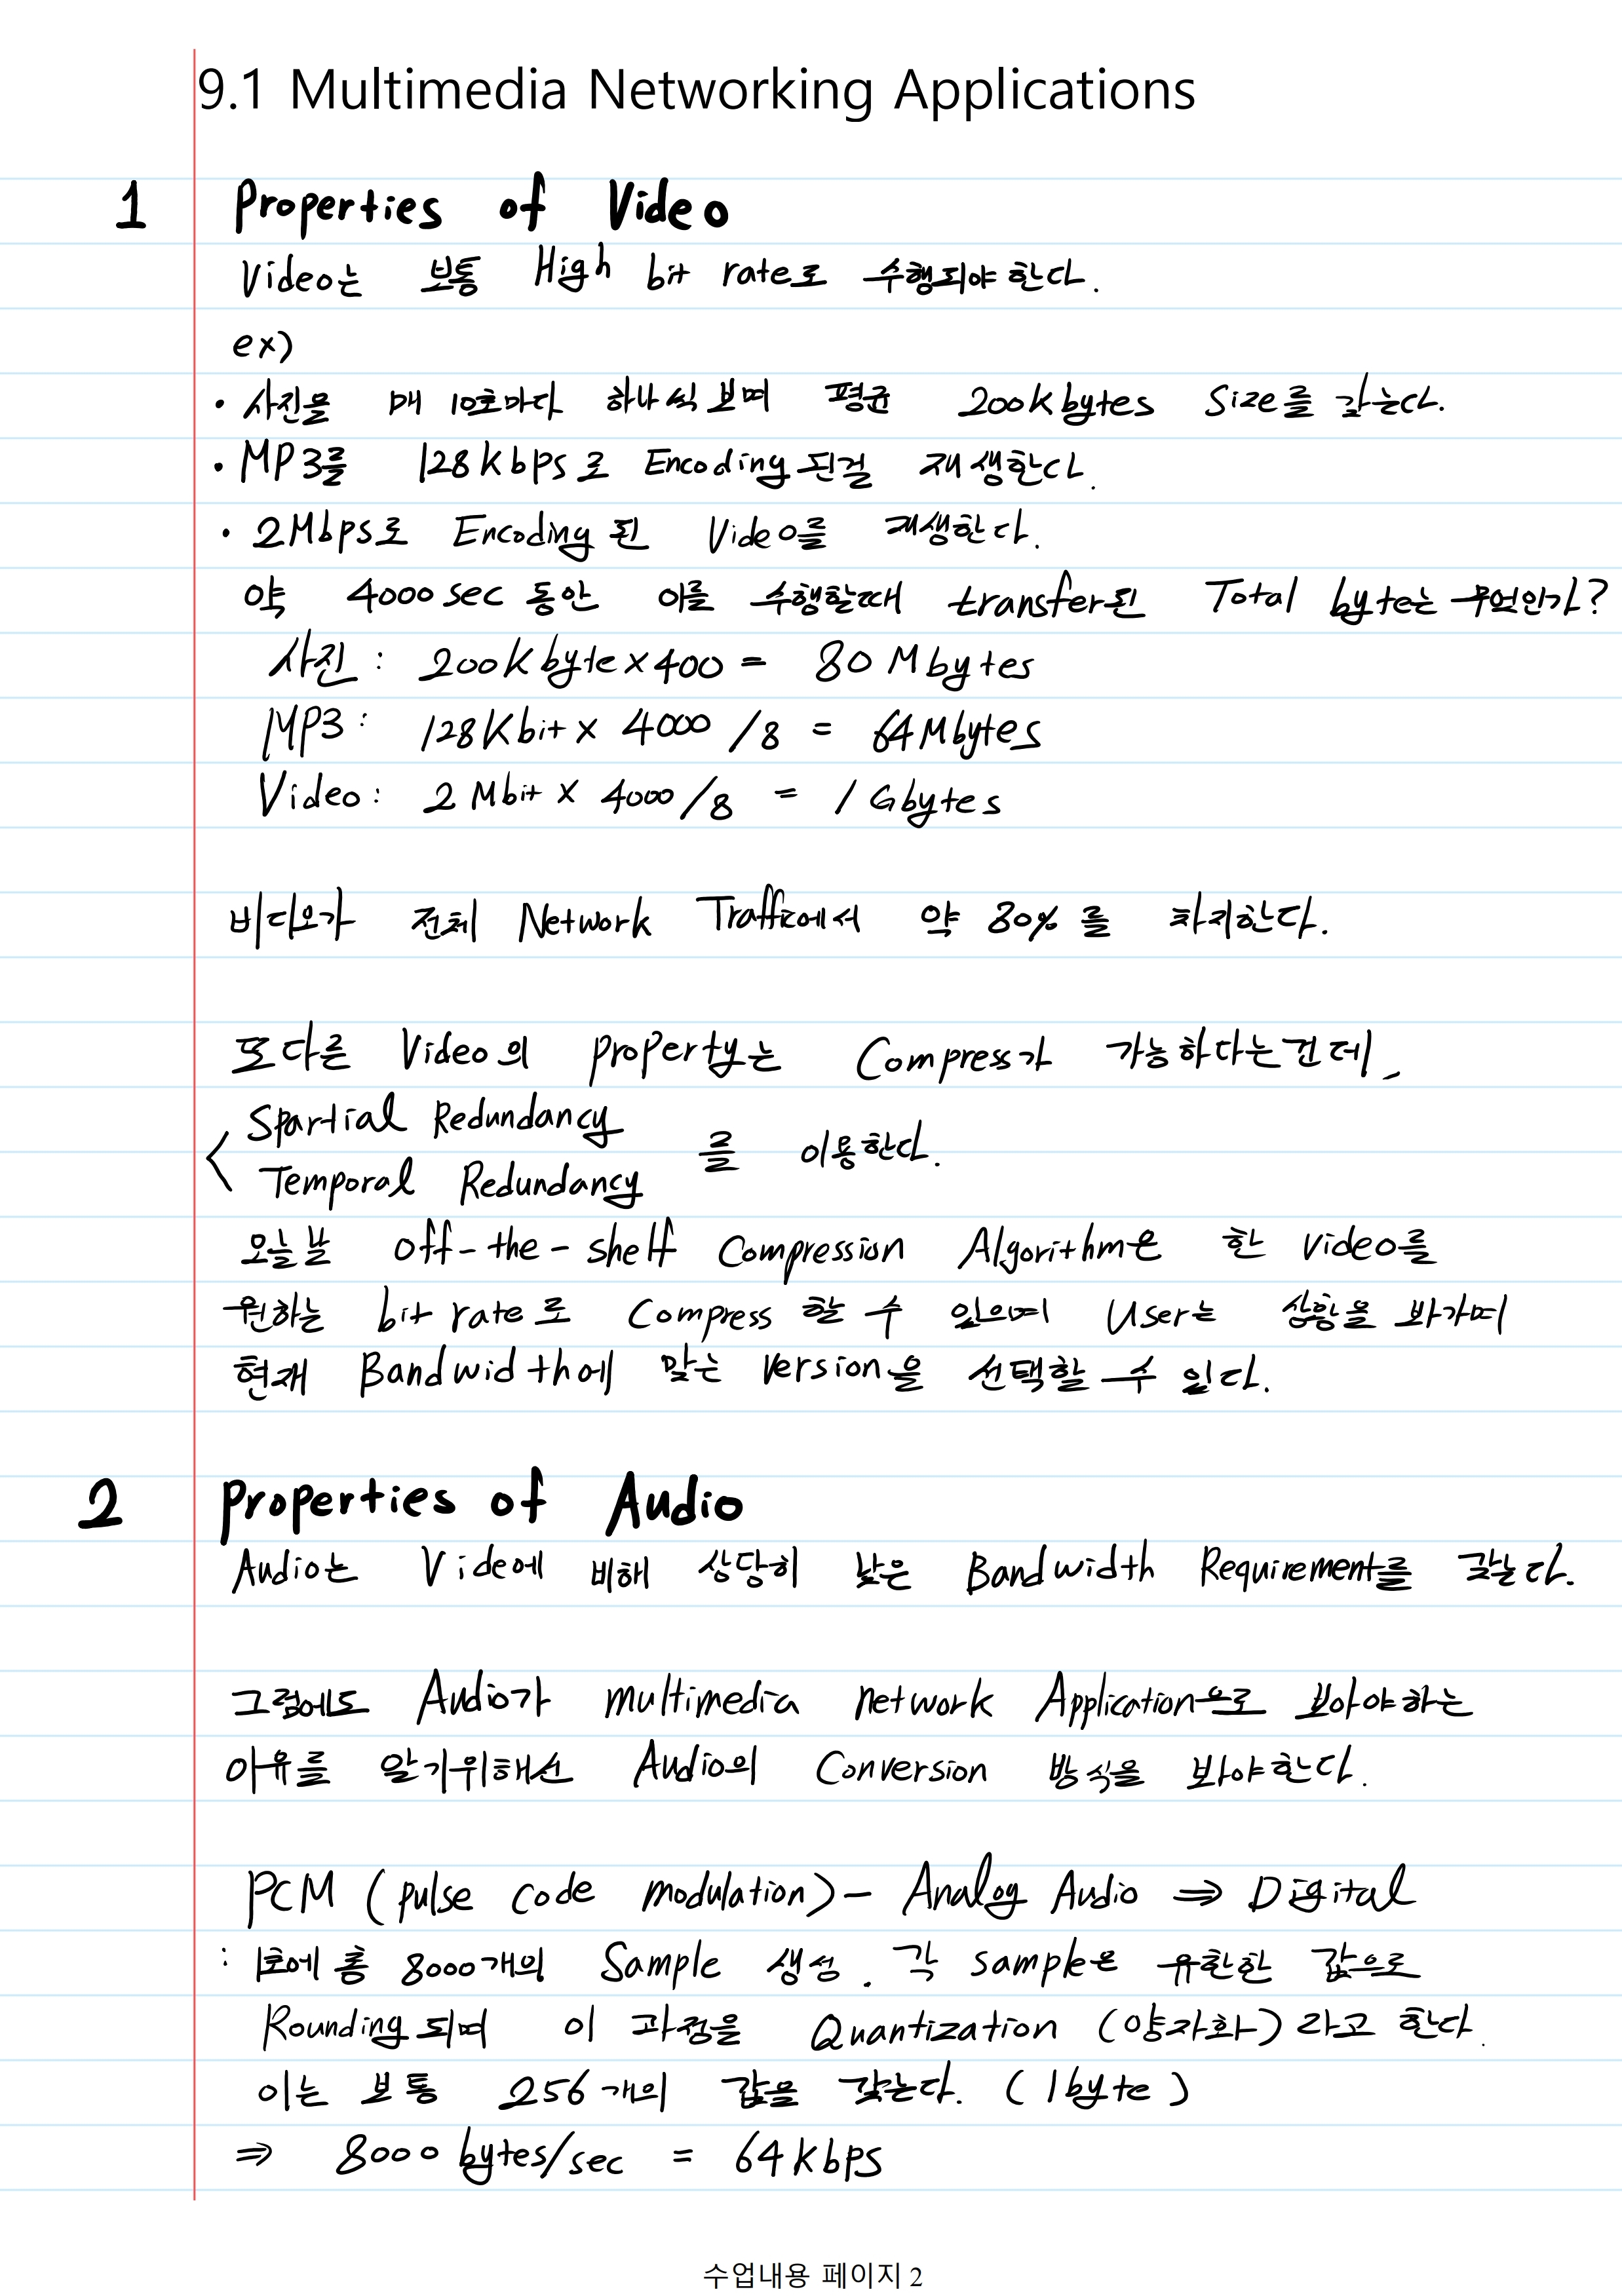 9.1 Multimedia Networking Applications
1 Properties of Video
Video는 보통 High bit rate로 수행되야 한다.
ex)
· 사진을 매 10초마다 하나씩 보며 평균 200Kbytes Size를 갖는다.
· MP3를 128Kbps로 Encoding된걸 재생한다.
· 2Mbps로 Encoding된 Video를 재생한다.
약 4000sec 동안 이를 수행할때 transfer된 Total byte는 무엇인가?
사진 : 200Kbyte×400 = 80 Mbytes
MP3 : 128Kbit× 4000 /8 = 64Mbytes
Video : 2 Mbit × 4000/8 = 1 Gbytes
비디오가 전체 Network Traffic에서 약 80% 를 차지한다.
또다른 Video의 property는 Compress가 가능하다는건데,
Spartial Redundancy
Temporal Redundancy 를 이용한다.
오늘날 off-the-shelf Compression Algorithm은 한 video를
원하는 bit rate로 Compress 할 수 있으며 User는 상황을 봐가며
현재 Bandwidth에 맞는 version을 선택할 수 있다.
2 Properties of Audio
Audio는 Video에 비해 상당히 낮은 Bandwidth Requirement를 갖는다.
그럼에도 Audio가 multimedia network Application으로 보아야하는
이유를 알기위해선 Audio의 Conversion 방식을 봐야한다.
PCM (pulse code modulation) - Analog Audio ⇒ Digital
: 1초에 총 8000개의 Sample 생성. 각 sample은 유한한 값으로
Rounding되며 이 과정을 Quantization (양자화) 라고 한다.
이는 보통 256개의 값을 갖는다. (1byte)
⇒ 8000 bytes/sec = 64Kbps
수업내용 페이지 2